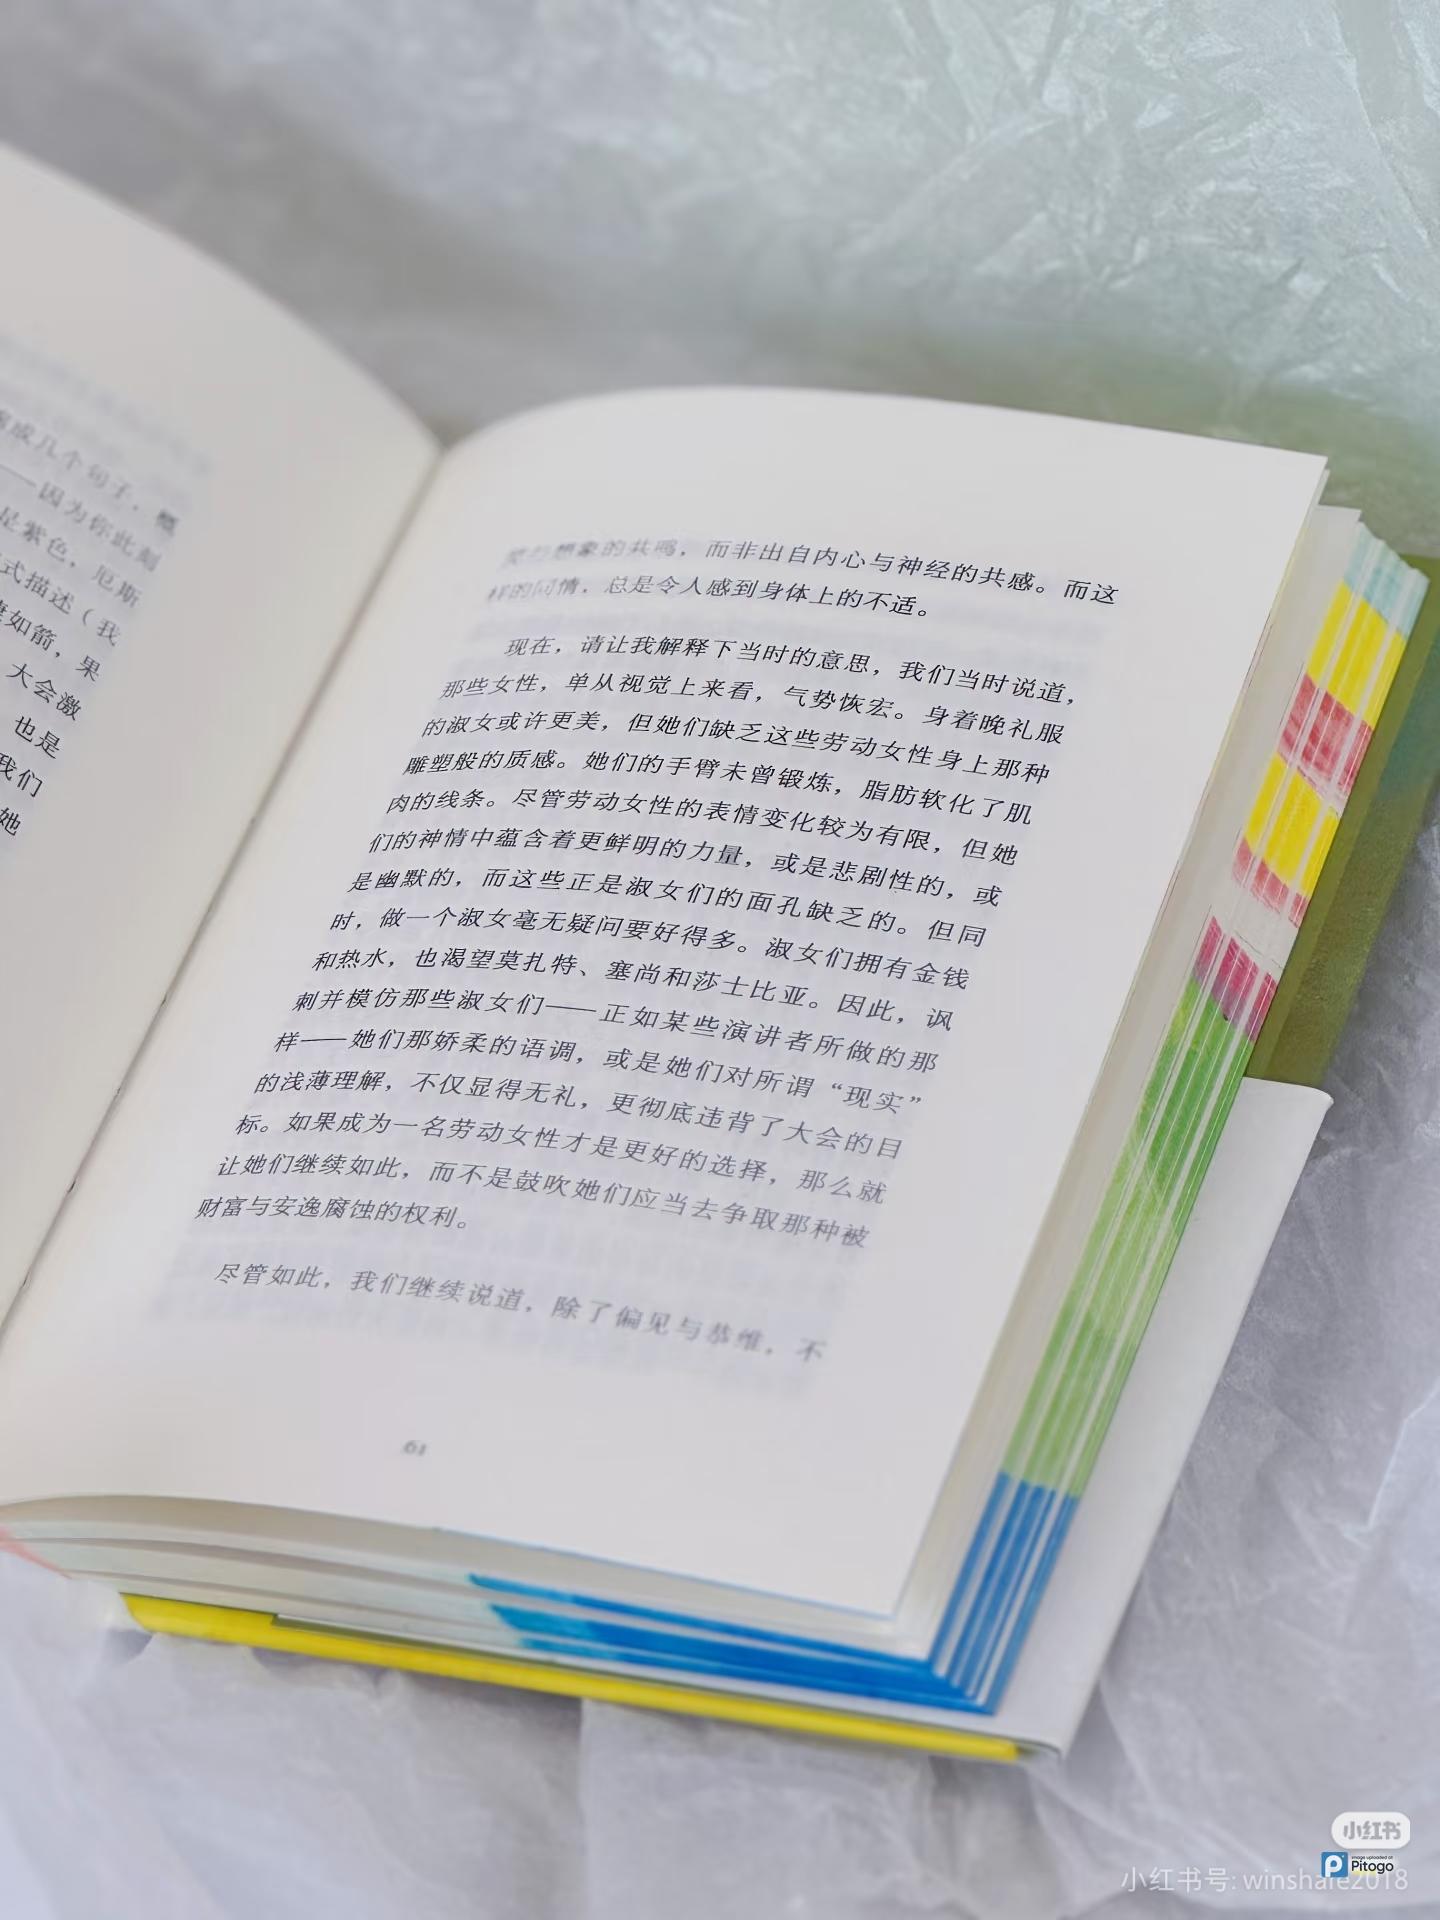 成几个句子，
——因为你此刻
是紫色，厄斯
式描述（我
如箭，果
大会激
也是
我们
她
想象的共鸣，而非出自内心与神经的共感。而这
样的同情，总是令人感到身体上的不适。
现在，请让我解释下当时的意思，我们当时说道，
那些女性，单从视觉上来看，气势恢宏。身着晚礼服
的淑女或许更美，但她们缺乏这些劳动女性身上那种
雕塑般的质感。她们的手臂未曾锻炼，脂肪软化了肌
肉的线条。尽管劳动女性的表情变化较为有限，但她
们的神情中蕴含着更鲜明的力量，或是悲剧性的，或
是幽默的，而这些正是淑女们的面孔缺乏的。但同
时，做一个淑女毫无疑问要好得多。淑女们拥有金钱
和热水，也渴望莫扎特、塞尚和莎士比亚。因此，讽
刺并模仿那些淑女们——正如某些演讲者所做的那
样——她们那娇柔的语调，或是她们对所谓“现实”
的浅薄理解，不仅显得无礼，更彻底违背了大会的目
标。如果成为一名劳动女性才是更好的选择，那么就
让她们继续如此，而不是鼓吹她们应当去争取那种被
财富与安逸腐蚀的权利。
尽管如此，我们继续说道，除了偏见与恭维，不
61
小红书
image uploaded at
Pitogo
小红书号: winshare2018